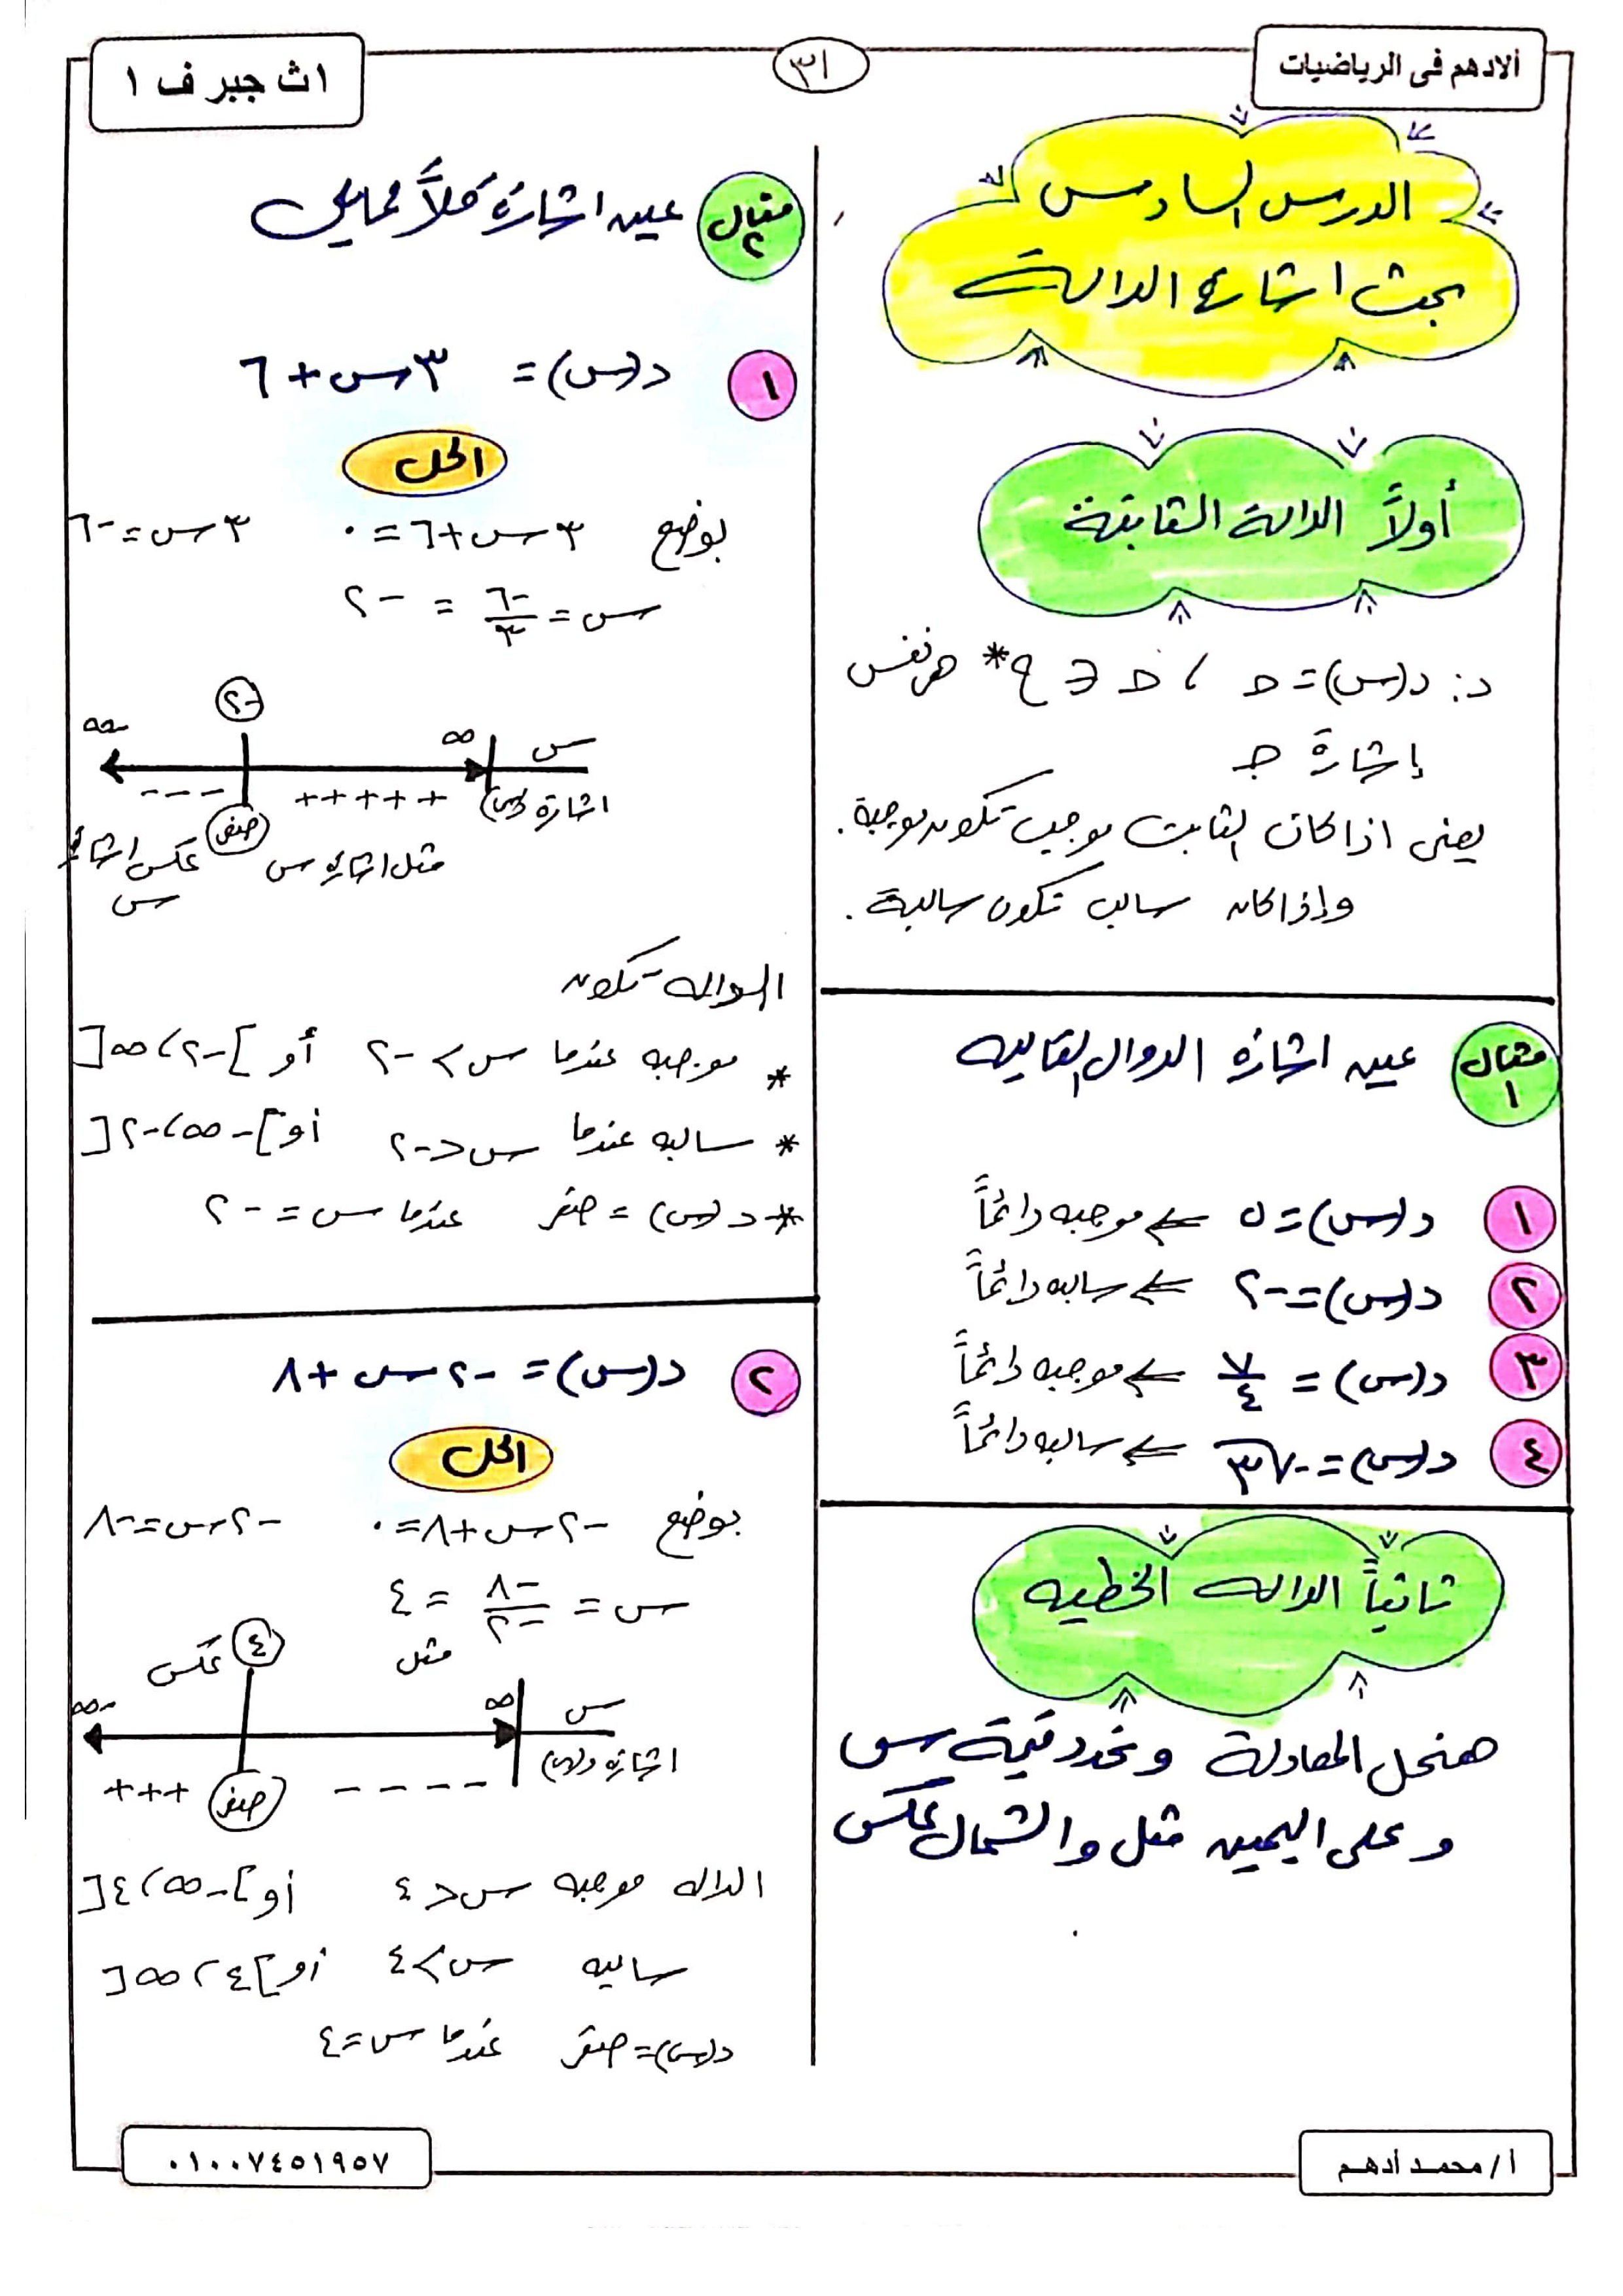 الادهم فى الرياضيات
٣١
١ث جبر ف ١
الدرس السادس
بحث اشارة الدالة
أولاً الدالة الثابتة
د: د(س) = حـ ، حـ ∈ ح* هى نفس
إشارة جـ
يعنى اذا كان الثابت موجب تكون موجبة.
وإذا كان سالب تكون سالبة.
مثال ١ عين اشارة الدوال التاليه
١ د(س) = ٥ ⇐ موجبه دائماً
٢ د(س) = -٢ ⇐ سالبه دائماً
٣ د(س) = ٧/٤ ⇐ موجبه دائماً
٤ د(س) = -√٣ ⇐ سالبه دائماً
ثانياً الداله الخطيه
هنحل المعادلة ونحدد قيمة س
وعلى اليمين مثل والشمال عكس
مثال ٢ عين اشارة كلاً مما يلى
١ د(س) = ٣س + ٦
الحل
بوضع ٣س + ٦ = ٠ ٣س = -٦
س = -٦/٣ = -٢
-٢
س ∞ -∞
اشارة د(س) + + + + + صفر - - -
مثل اشارة س عكس اشارة
س
الداله تكون
* موجبه عندما س > -٢ أو ]-٢، ∞[
* سالبه عندما س < -٢ أو ]-∞، -٢[
* د(س) = صفر عندما س = -٢
٢ د(س) = -٢س + ٨
الحل
بوضع -٢س + ٨ = ٠ -٢س = -٨
س = -٨/-٢ = ٤
مثل ٤ عكس
س ∞ -∞
اشارة د(س) - - - - صفر + + +
الداله موجبه س < ٤ أو ]-∞، ٤[
سالبه س > ٤ أو ]٤، ∞[
د(س) = صفر عندما س = ٤
أ/ محمد أدهم
٠١٠٠٧٤٥١٩٥٧